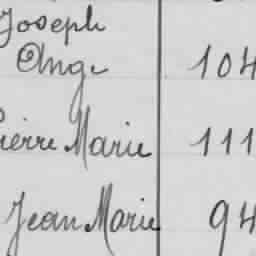 Joseph
Ange 104
Pierre Marie 111
Jean Marie 94